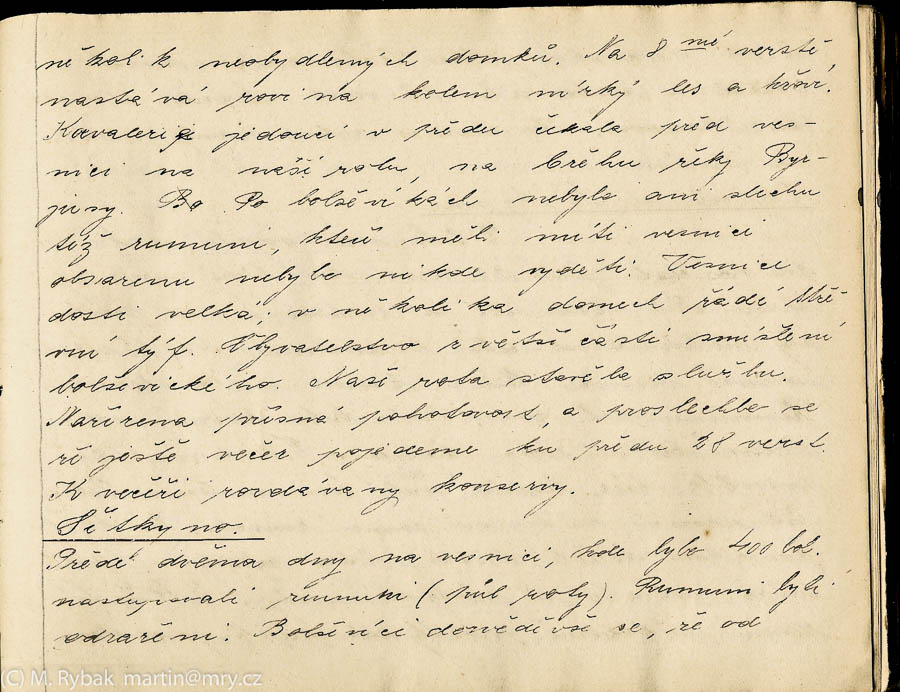 několik neobydlených domků. Na 8 mé verstě
nastává rovina kolem nízký les a křoví.
Kavalerie jedoucí v předu čekala před ves-
nici na naší rotu, na břehu řeky Byr-
jusy. Bo Po bolševíkách nebylo ani slechu
též rumuni, kteří měli míti vesnici
obsazenu nebylo nikde vyděti. Vesnice
dosti velká; v několika domech řádí stře-
vní týf. Obyvatelstvo z větší části smíšlení
bolševického. Naší rota stavěla službu.
Nařízena přísná pohotovost, a proslechlo se
že ještě večer pojedeme ku předu 28 verst.
K večeři rozdávany konservy.
Šítkyno.
Předě dvěma dny na vesnici, kde bylo 400 bol.
nastupovali rumuni (půl roty). Rumuni byli
odraženi. Bolševíci dověděvše se, že od
(C) M. Rybak martin@mry.cz